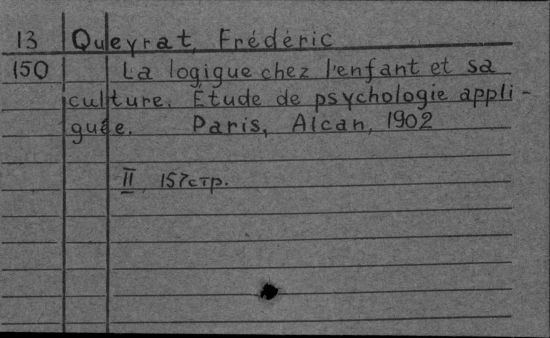 13 Queyrat, Frédéric
150 La logique chez l'enfant et sa
culture. Étude de psychologie appli-
quée. Paris, Alcan, 1902
II, 157стр.